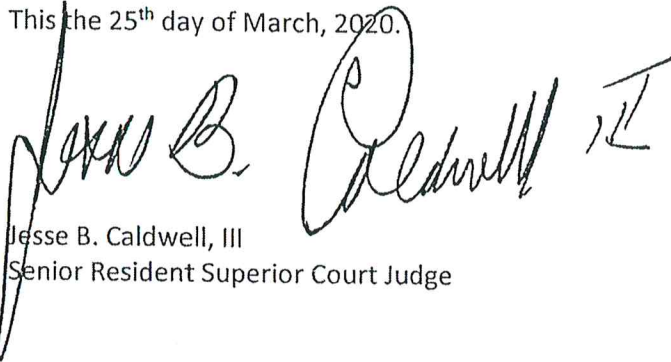 This the 25th day of March, 2020.
Jesse B. Caldwell III
Jesse B. Caldwell, III
Senior Resident Superior Court Judge